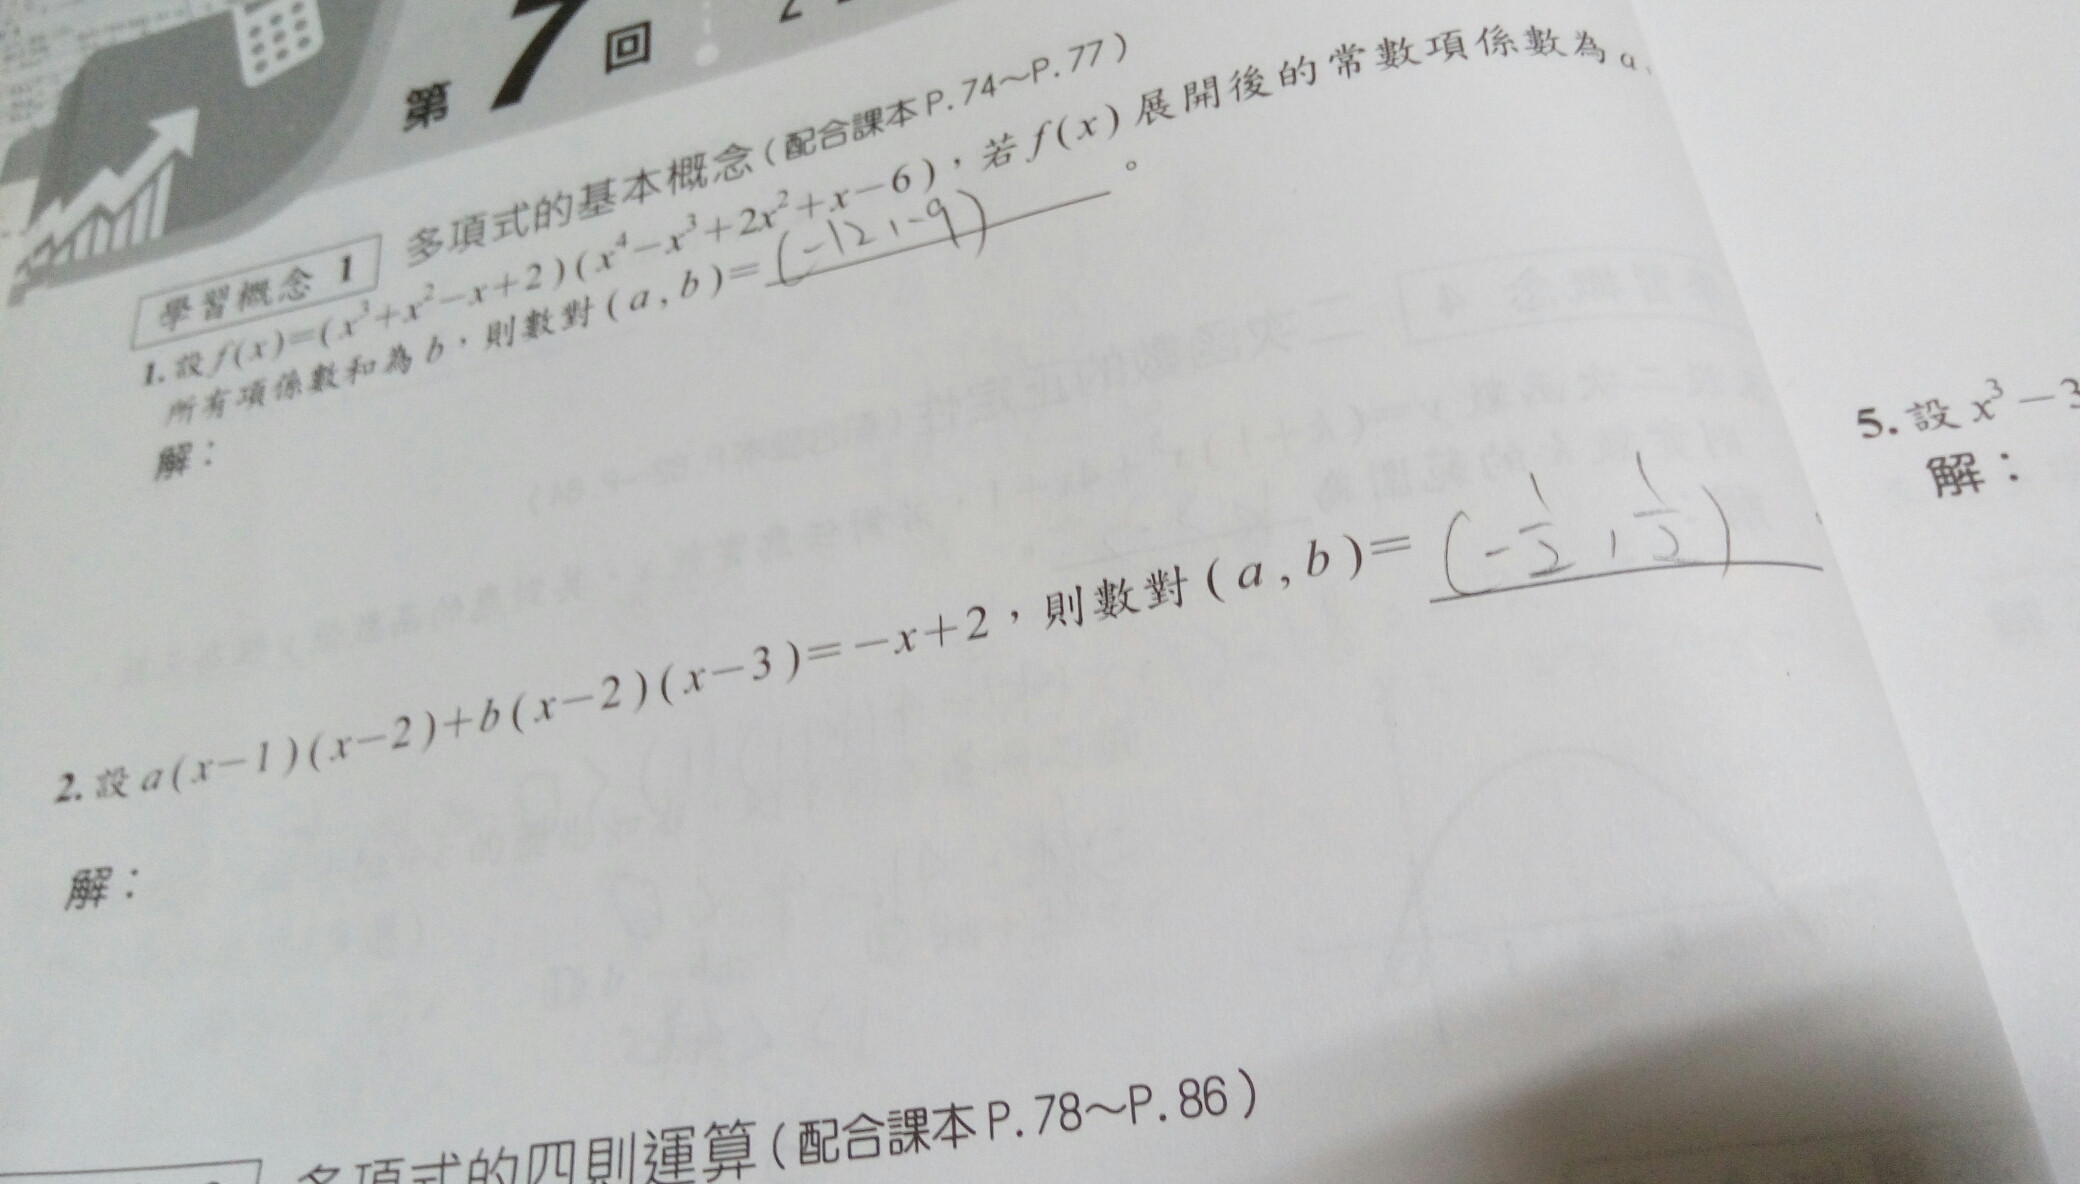 第7回
學習概念 1 多項式的基本概念(配合課本P.74~P.77)
1. 設f(x)=(x³+x²-x+2)(x⁴-x³+2x²+x-6),若f(x)展開後的常數項係數為a,
所有項係數和為b,則數對(a,b)=(-12,-9)。
解:
2. 設a(x-1)(x-2)+b(x-2)(x-3)=-x+2,則數對(a,b)=(-1/2,1/2)
解:
多項式的四則運算(配合課本P.78~P.86)
5. 設x³-3
解: